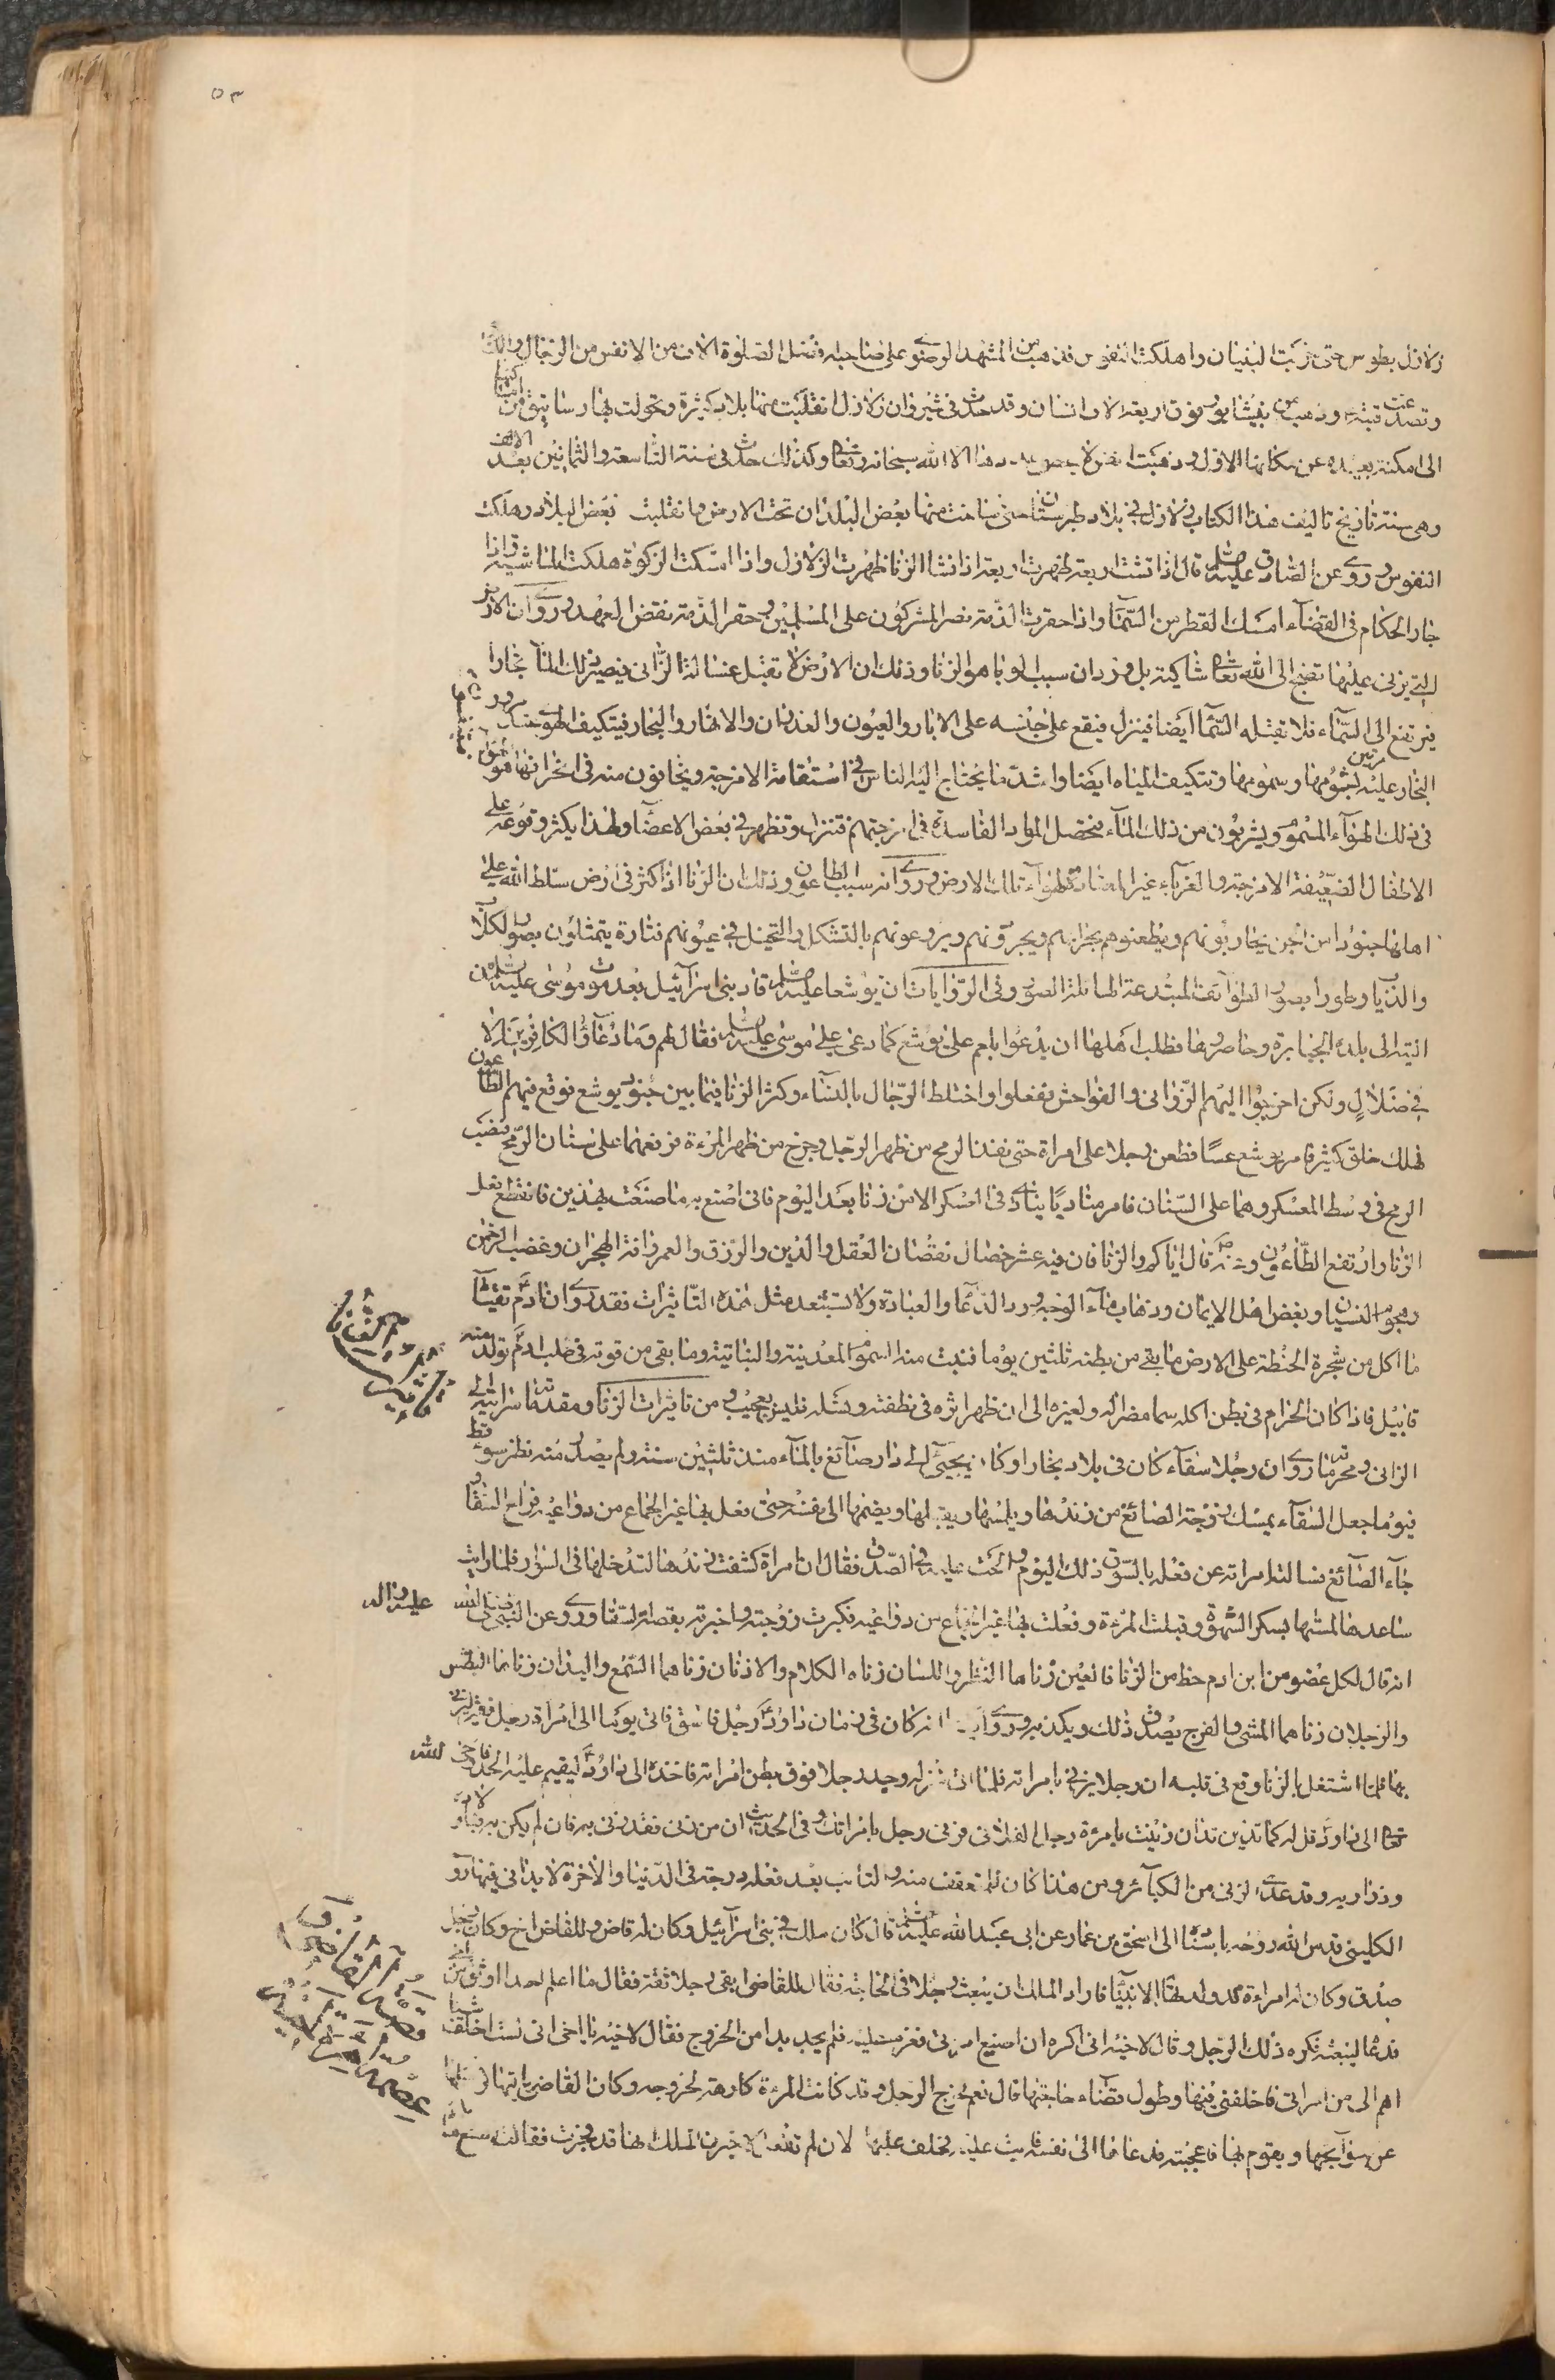 ٥٣
زلازل بطوس حتى خربت البنيان واهلكت النفوس فذهب من المشهد الرضوي على صاحبه افضل الصلوة الاف من الانفس من الرجال والنساء
وتصدعت قبته وذهب من نيشابور فوق اربعة الاف انسان وقد حدث في شيروان زلازل انقلبت منها بلاد كثيرة وتحولت بها رساتيق
الى امكنة بعيدة عن مكانها الاول وذهبت انفس لا يعلم عددها الا الله سبحانه وتعالى وكذلك حدث في سنة التاسعة والثمانين بعد الالف
وهي سنة تاريخ تاليف هذا الكتاب زلازل في بلاد طبرستان حتى ساخت منها بعض البلدان تحت الارض وانقلبت بعض البلاد وهلكت
النفوس وروي عن الصادق عليه السلم قال اذا فشت اربعة ظهرت اربعة اذا فشا الزنا ظهرت الزلازل واذا امسكت الزكوة هلكت الماشية واذا
جار الحكام في القضاء امسك القطر من السماء واذا خفرت الذمة نصر المشركون على المسلمين وخفر الذمة نقض العهد وروي ان الارض
التي يزنى عليها تضج الى الله تعالى شاكية بل ورد ان سبب الوبا هو الزنا وذلك ان الارض لا تقبل غسالة الزاني فيصير ذلك الماء بخارا
فيرتفع الى السماء فلا تقبله السماء ايضا فينزل فيقع على جنسه على الابار والعيون والغدران والانهار والبحار فيتكيف الهوى
البخار عليه بشومها وسمومها وتتكيف المياه ايضا واشد ما يحتاج اليه الناس في استقامة الامزجة ويخافون منه في انحرافها هو الهواء
في ذلك الهواء المسموم ويشربون من ذلك الماء فتحصل المواد الفاسدة في امزجتهم فتنزل وتظهر في بعض الاعضاء ولهذا يكثر وقوعه على
الاطفال الضعيفة الامزجة والغرباء غير المعتادة لهواء تلك الارض وروي انه سبب الطاعون وذلك ان الزنا اذا كثر في ارض سلط الله على
اهلها جنودا من الجن يحاربونهم ويطعنوهم بحرابهم ويجرونهم ويروعونهم بالتشكل والتخيل في عيونهم فتارة يتمثلون بصور الكلاب
والذئاب وطورا بصور الطوائف المبتدعة الهائلة الصور وفي الروايات ان يوشعا عليه السلم قاد بني اسرائيل بعد موت موسى عليه السلم من
التيه الى بلدة الجبابرة وحاصرها فطلب اهلها ان يدعوا بلعم على يوشع كما دعى على موسى عليه السلم فقال لهم وما دعاء الكافرين الا
في ضلال ولكن اخرجوا اليهم الزواني والفواحش ففعلوا واختلط الرجال بالنساء وكثر الزنا فيما بين جنود يوشع فوقع فيهم الطاعون
فهلك خلق كثير فامر يوشع عسا فطعن رجلا على امراة حتى نفذ الرمح من ظهر الرجل وخرج من ظهر المرءة فرفعهما على سنان الرمح فنصب
الرمح في وسط المعسكر وهما على السنان فامر مناديا ينادي في العسكر الا من زنا بعد اليوم فاني اصنع به ما صنعت بهذين فانقطع فعل
الزنا وارتفع الطاعون وعنه ص قال اياكم والزنا فان فيه عشر خصال نقصان العقل والدين والرزق والعمر وافة الهجران وغضب الرحمن
وهجوم النسيان وبغض اهل الايمان وذهاب ماء الوجه ورد الدعا والعبادة ولا تستبعد مثل هذه التاثيرات فقد روي ان ادم تقيأ
ما اكل من شجرة الحنطة على الارض ما بقي من بطنه ثلثين يوما فنبت منه السموم المعدنية والنباتية وما بقي من قوته في صلب ادم تولد منه
قابيل فاذا كان الحرام في بطن اكله سما مضرا له ولغيره الى ان ظهر اثره في نطفته ونسله فليس بعجيب ومن تاثيرات الزنا ومقدماته سراية الى
الزاني ومحرمه ما روي ان رجلا سقاء كان في بلاد بخارا وكان يجيئ الى دار صائغ بالماء منذ ثلثين سنة ولم يصدر منه نظر سوء قط
فيوما جعل السقاء يمسك زوجة الصائغ من زندها ويلمسها ويقبلها ويضمها الى نفسه حتى فعل بها غير الجماع من دواعيه فراح السقا و
جاء الصائغ فسالته امراته عن فعله بالسوق ذلك اليوم والحت عليه في الصدق فقال ان امراة كشفت زندها لتدخلها في السوار فلما رايت
ساعدها لمستها بسكر الشهوة وقبلت المرءة وفعلت بها غير الجماع من دواعيه فكبرت زوجته واخبرته بقصة السقا وروي عن النبي صلى الله عليه واله
انه قال لكل عضو من ابن ادم حظ من الزنا فالعين زناها النظر واللسان زناه الكلام والاذنان زناهما السمع واليدان زناهما البطش
والرجلان زناهما المشي والفرج يصدق ذلك ويكذبه وروي انه كان في زمان داود رجل فاسق فاتى يوما الى امراة رجل فقير ليزني
بها فلما اشتغل بالزنا وقع في قلبه ان رجلا يزني بامراته فلما اتى منزله وجد رجلا فوق بطن امراته فاخذه الى داود ليقيم عليه الحد فاوحى الله
تعالى الى داود قل له كما تدين تدان زنيت بامرءة رجل الفلاني فزنى رجل بامراتك وفي الحديث ان من زنى فقد زني به فان لم يكن به فباولاده
وذراريه وقد عد الزنى من الكبائر ومن هذا كان للمتعفف منه والتائب بعد فعله درجة في الدنيا والاخرة لا يدانى فيها روى
الكليني قدس الله روحه باسناده الى اسحق بن عمار عن ابي عبد الله عليه السلم قال كان ملك في بني اسرائيل وكان له قاض وللقاضي اخ وكان رجل
صدق وكان له امراءة قد ولدتها الانبياء فاراد الملك ان يبعث رجلا في حاجة فقال للقاضي ابغي رجلا ثقة فقال ما اعلم احدا اوثق من اخي
فدعاه ليبعثه فكره ذلك الرجل وقال لاخيه اني اكره ان اضيع امراتي فعزم عليه فلم يجد بدا من الخروج فقال لاخيه يا اخي اني لست اخلف شيئا
اهم الى من امراتي فاخلفني فيها وتول قضاء حاجتها قال نعم فخرج الرجل وقد كانت المرءة كارهة لخروجه وكان القاضي ياتيها
عن حوائجها ويقوم لها فاعجبته فدعاها الى نفسه فابت عليه فحلف عليها لان لم تفعل لاخبرن الملك انها قد فجرت فقالت اصنع ما